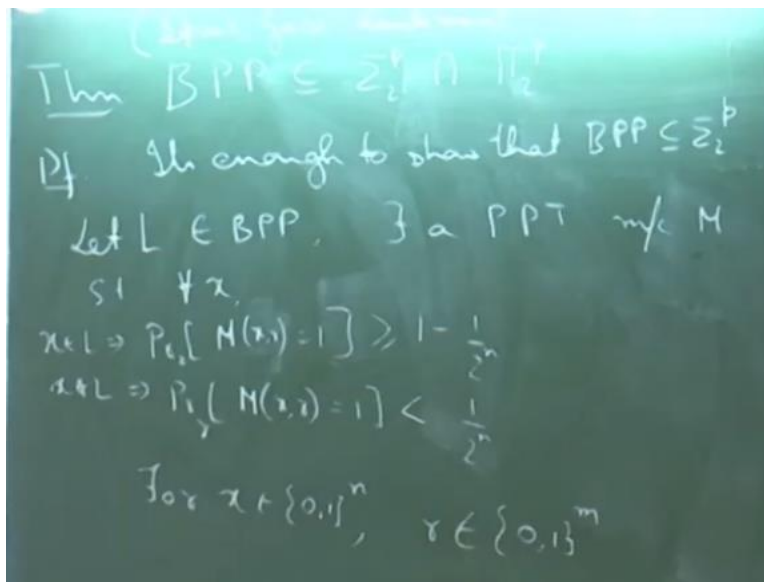 Thm BPP ⊆ Σ₂ᵖ ∩ Π₂ᵖ
Pf. Its enough to show that BPP ⊆ Σ₂ᵖ
Let L ∈ BPP, ∃ a PPT m/c M
st ∀ x,
x ∈ L ⇒ Pr_r[ M(x,r) = 1 ] ≥ 1 - 1/2ⁿ
x ∉ L ⇒ Pr_r[ M(x,r) = 1 ] < 1/2ⁿ
For x ∈ {0,1}ⁿ, r ∈ {0,1}ᵐ